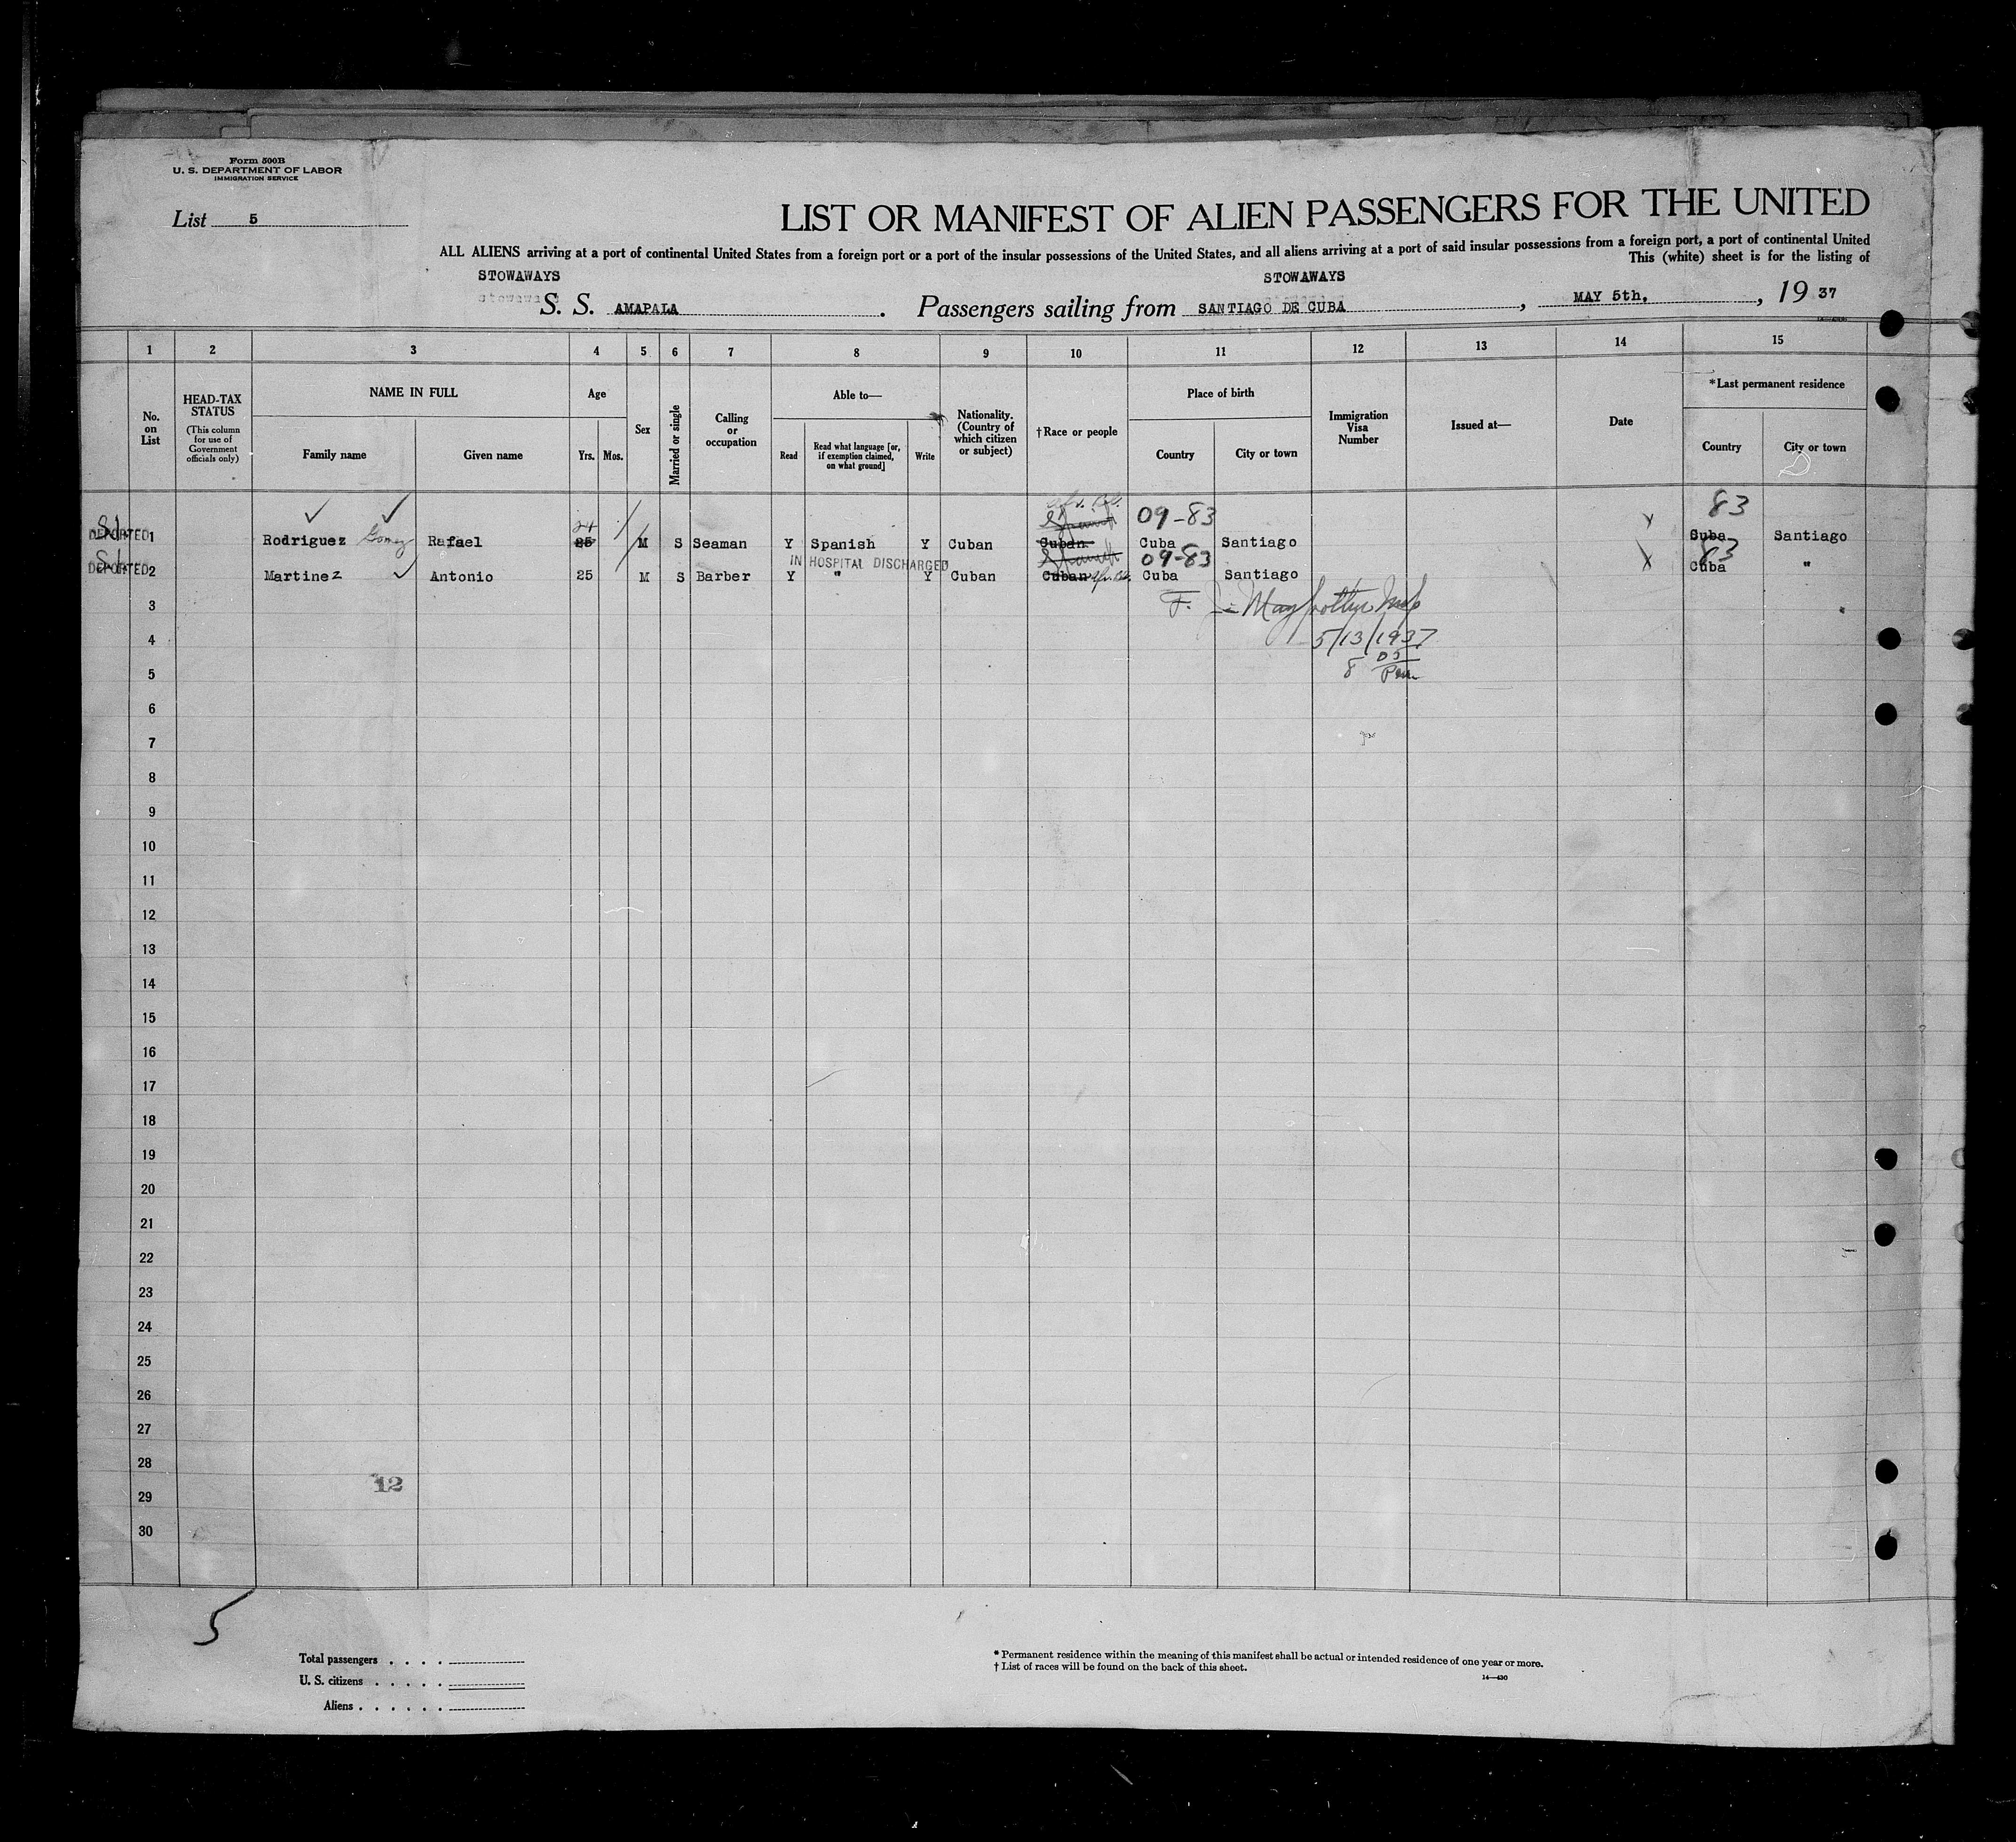 Form 500B
U. S. DEPARTMENT OF LABOR
IMMIGRATION SERVICE
List 5
LIST OR MANIFEST OF ALIEN PASSENGERS FOR THE UNITED
ALL ALIENS arriving at a port of continental United States from a foreign port or a port of the insular possessions of the United States, and all aliens arriving at a port of said insular possessions from a foreign port, a port of continental United
This (white) sheet is for the listing of
STOWAWAYS STOWAWAYS
stowaways
S. S. AMAPALA . Passengers sailing from SANTIAGO DE CUBA , MAY 5th, , 19 37
1 2 3 4 5 6 7 8 9 10 11 12 13 14 15
No. on List
HEAD-TAX STATUS
(This column for use of Government officials only)
NAME IN FULL
Family name Given name
Age
Yrs. Mos.
Sex
Married or single
Calling or occupation
Able to—
Read
Read what language [or, if exemption claimed, on what ground]
Write
Nationality. (Country of which citizen or subject)
†Race or people
Place of birth
Country City or town
Immigration Visa Number
Issued at—
Date
*Last permanent residence
Country City or town
24 09-83 83
DEPORTED 1 Rodriguez Gomez Rafael 25 M S Seaman Y Spanish Y Cuban Cuban Cuba Santiago Cuba Santiago
IN HOSPITAL DISCHARGED 09-83 83
DEPORTED 2 Martinez Antonio 25 M S Barber Y " Y Cuban Cuban Cuba Santiago Cuba "
3
4 5/13/1937
5 8 05 Pm
6
7
8
9
10
11
12
13
14
15
16
17
18
19
20
21
22
23
24
25
26
27
28
12
29
30
5
Total passengers . . . .
U. S. citizens . . . . .
Aliens . . . . . .
* Permanent residence within the meaning of this manifest shall be actual or intended residence of one year or more.
† List of races will be found on the back of this sheet.
14—430